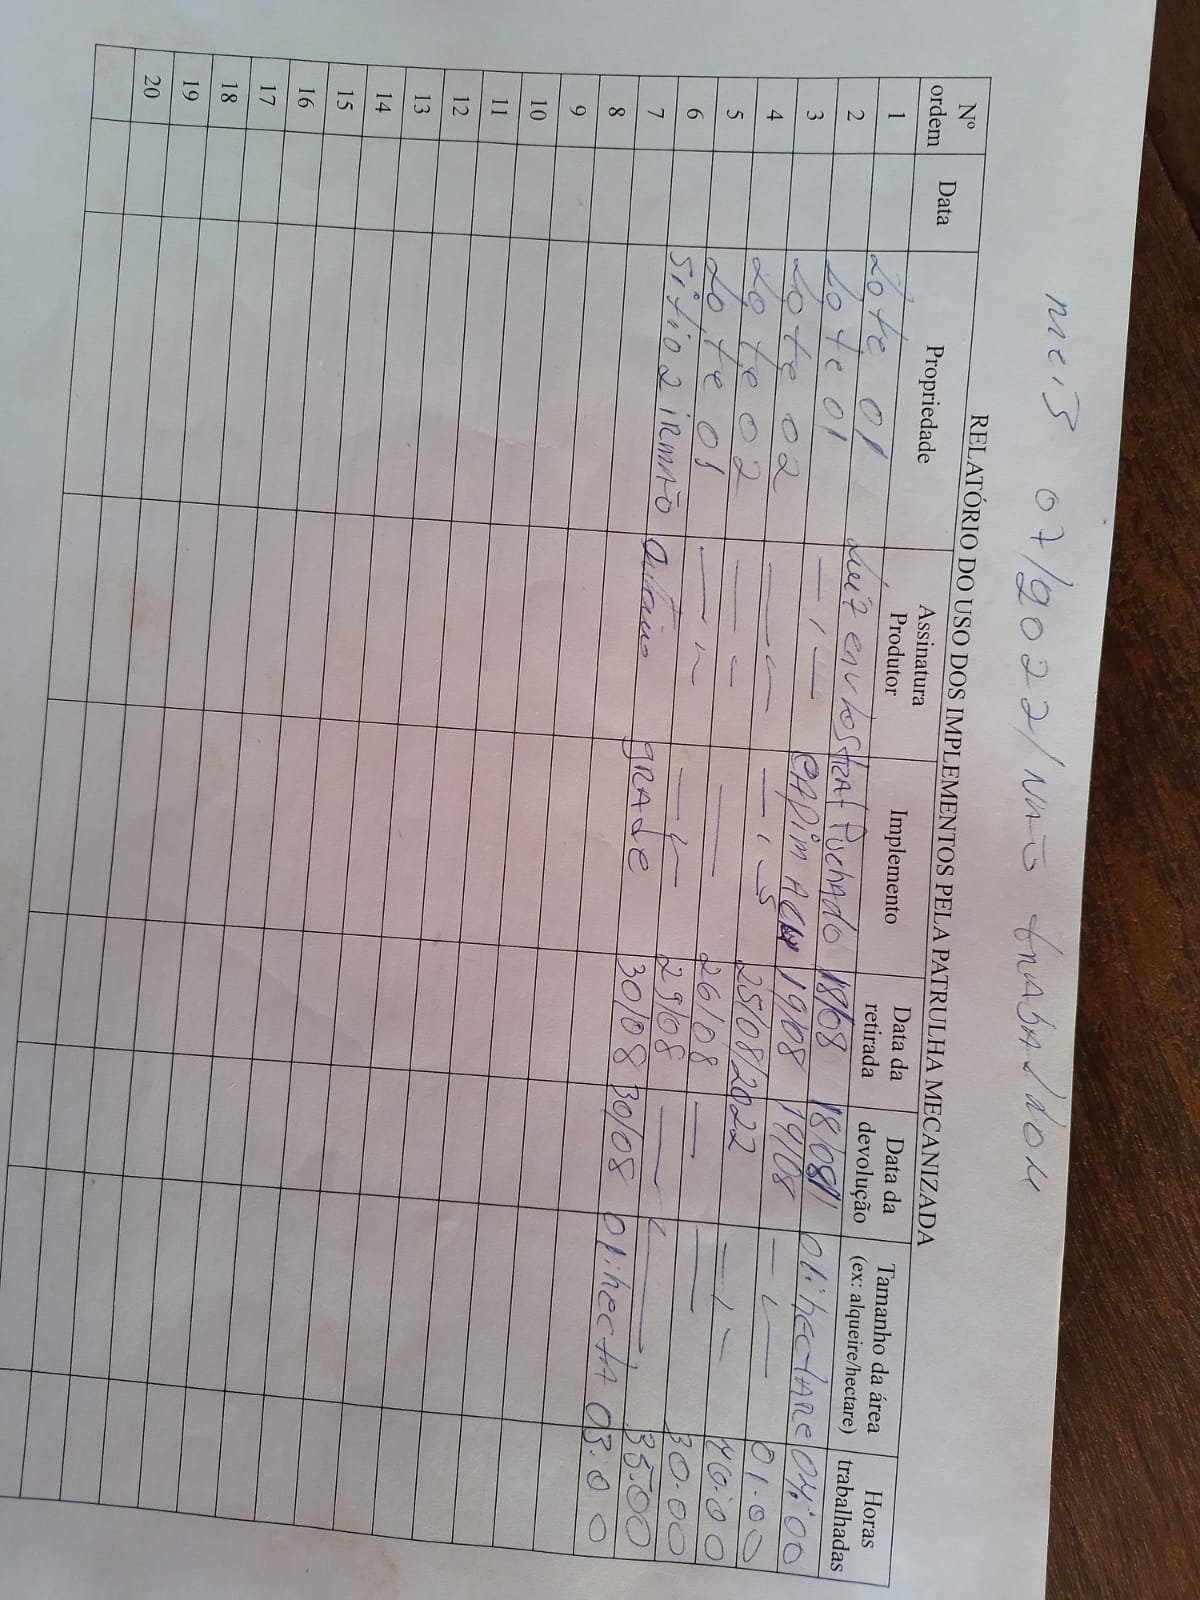 meis 07/2022/ não trabalhou
RELATÓRIO DO USO DOS IMPLEMENTOS PELA PATRULHA MECANIZADA
Nº ordem Data Propriedade Assinatura Produtor Implemento Data da retirada Data da devolução Tamanho da área (ex: alqueire/hectare) Horas trabalhadas
1 Lote 01 Luiz Puchado 18/08 18/08 01:hectare 04:00
2 Lote 01 — , — capim 19/08 19/08 — 01.00
3 Lote 02 — — 25/08/2022 — 40:00
4 Lote 02 — — 26/08 — — 30.00
5 Lote 01 — — 29/08 — — 35.00
6 Sitio 2 irmão grade 30/08 30/08 01:hecta 03.00
7
8
9
10
11
12
13
14
15
16
17
18
19
20